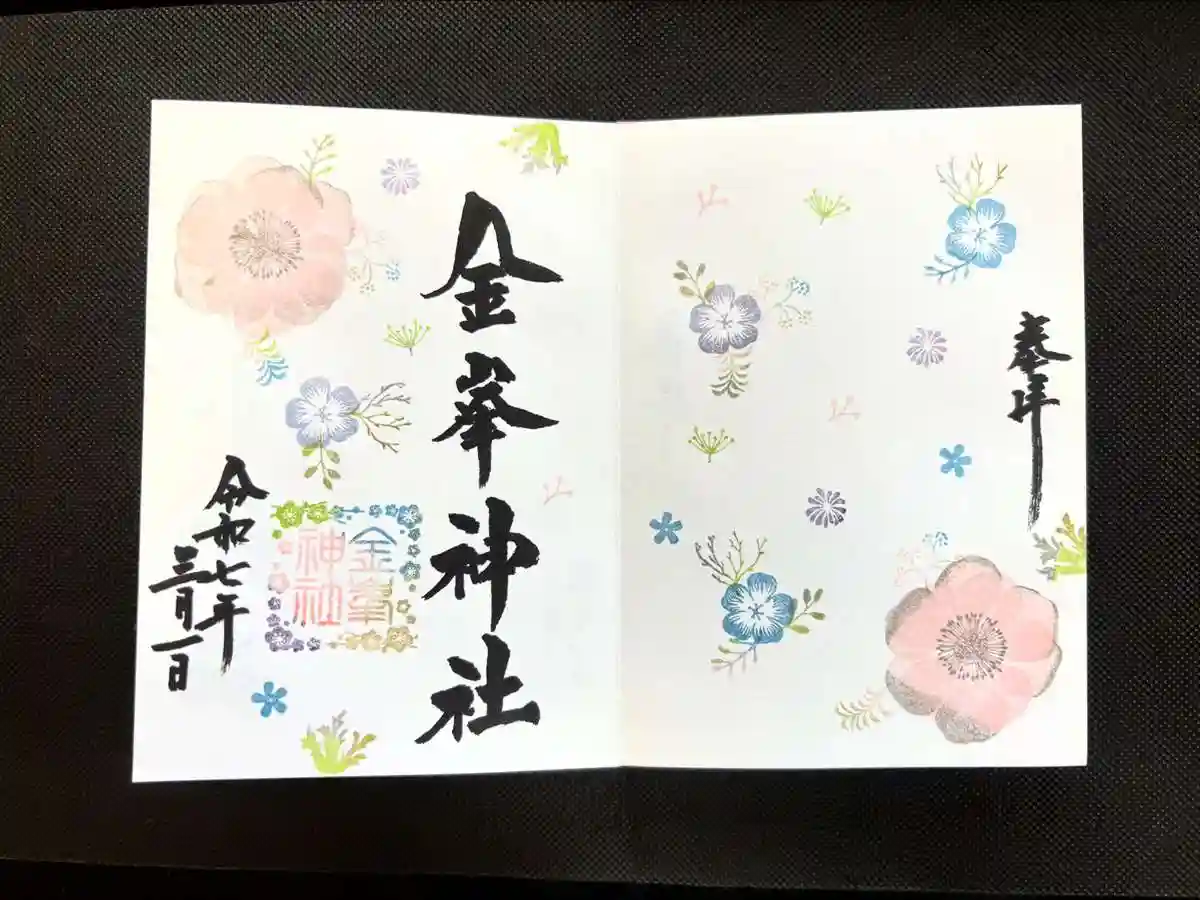 奉拝
金峯神社
金峯
神社
令和七年
三月一日